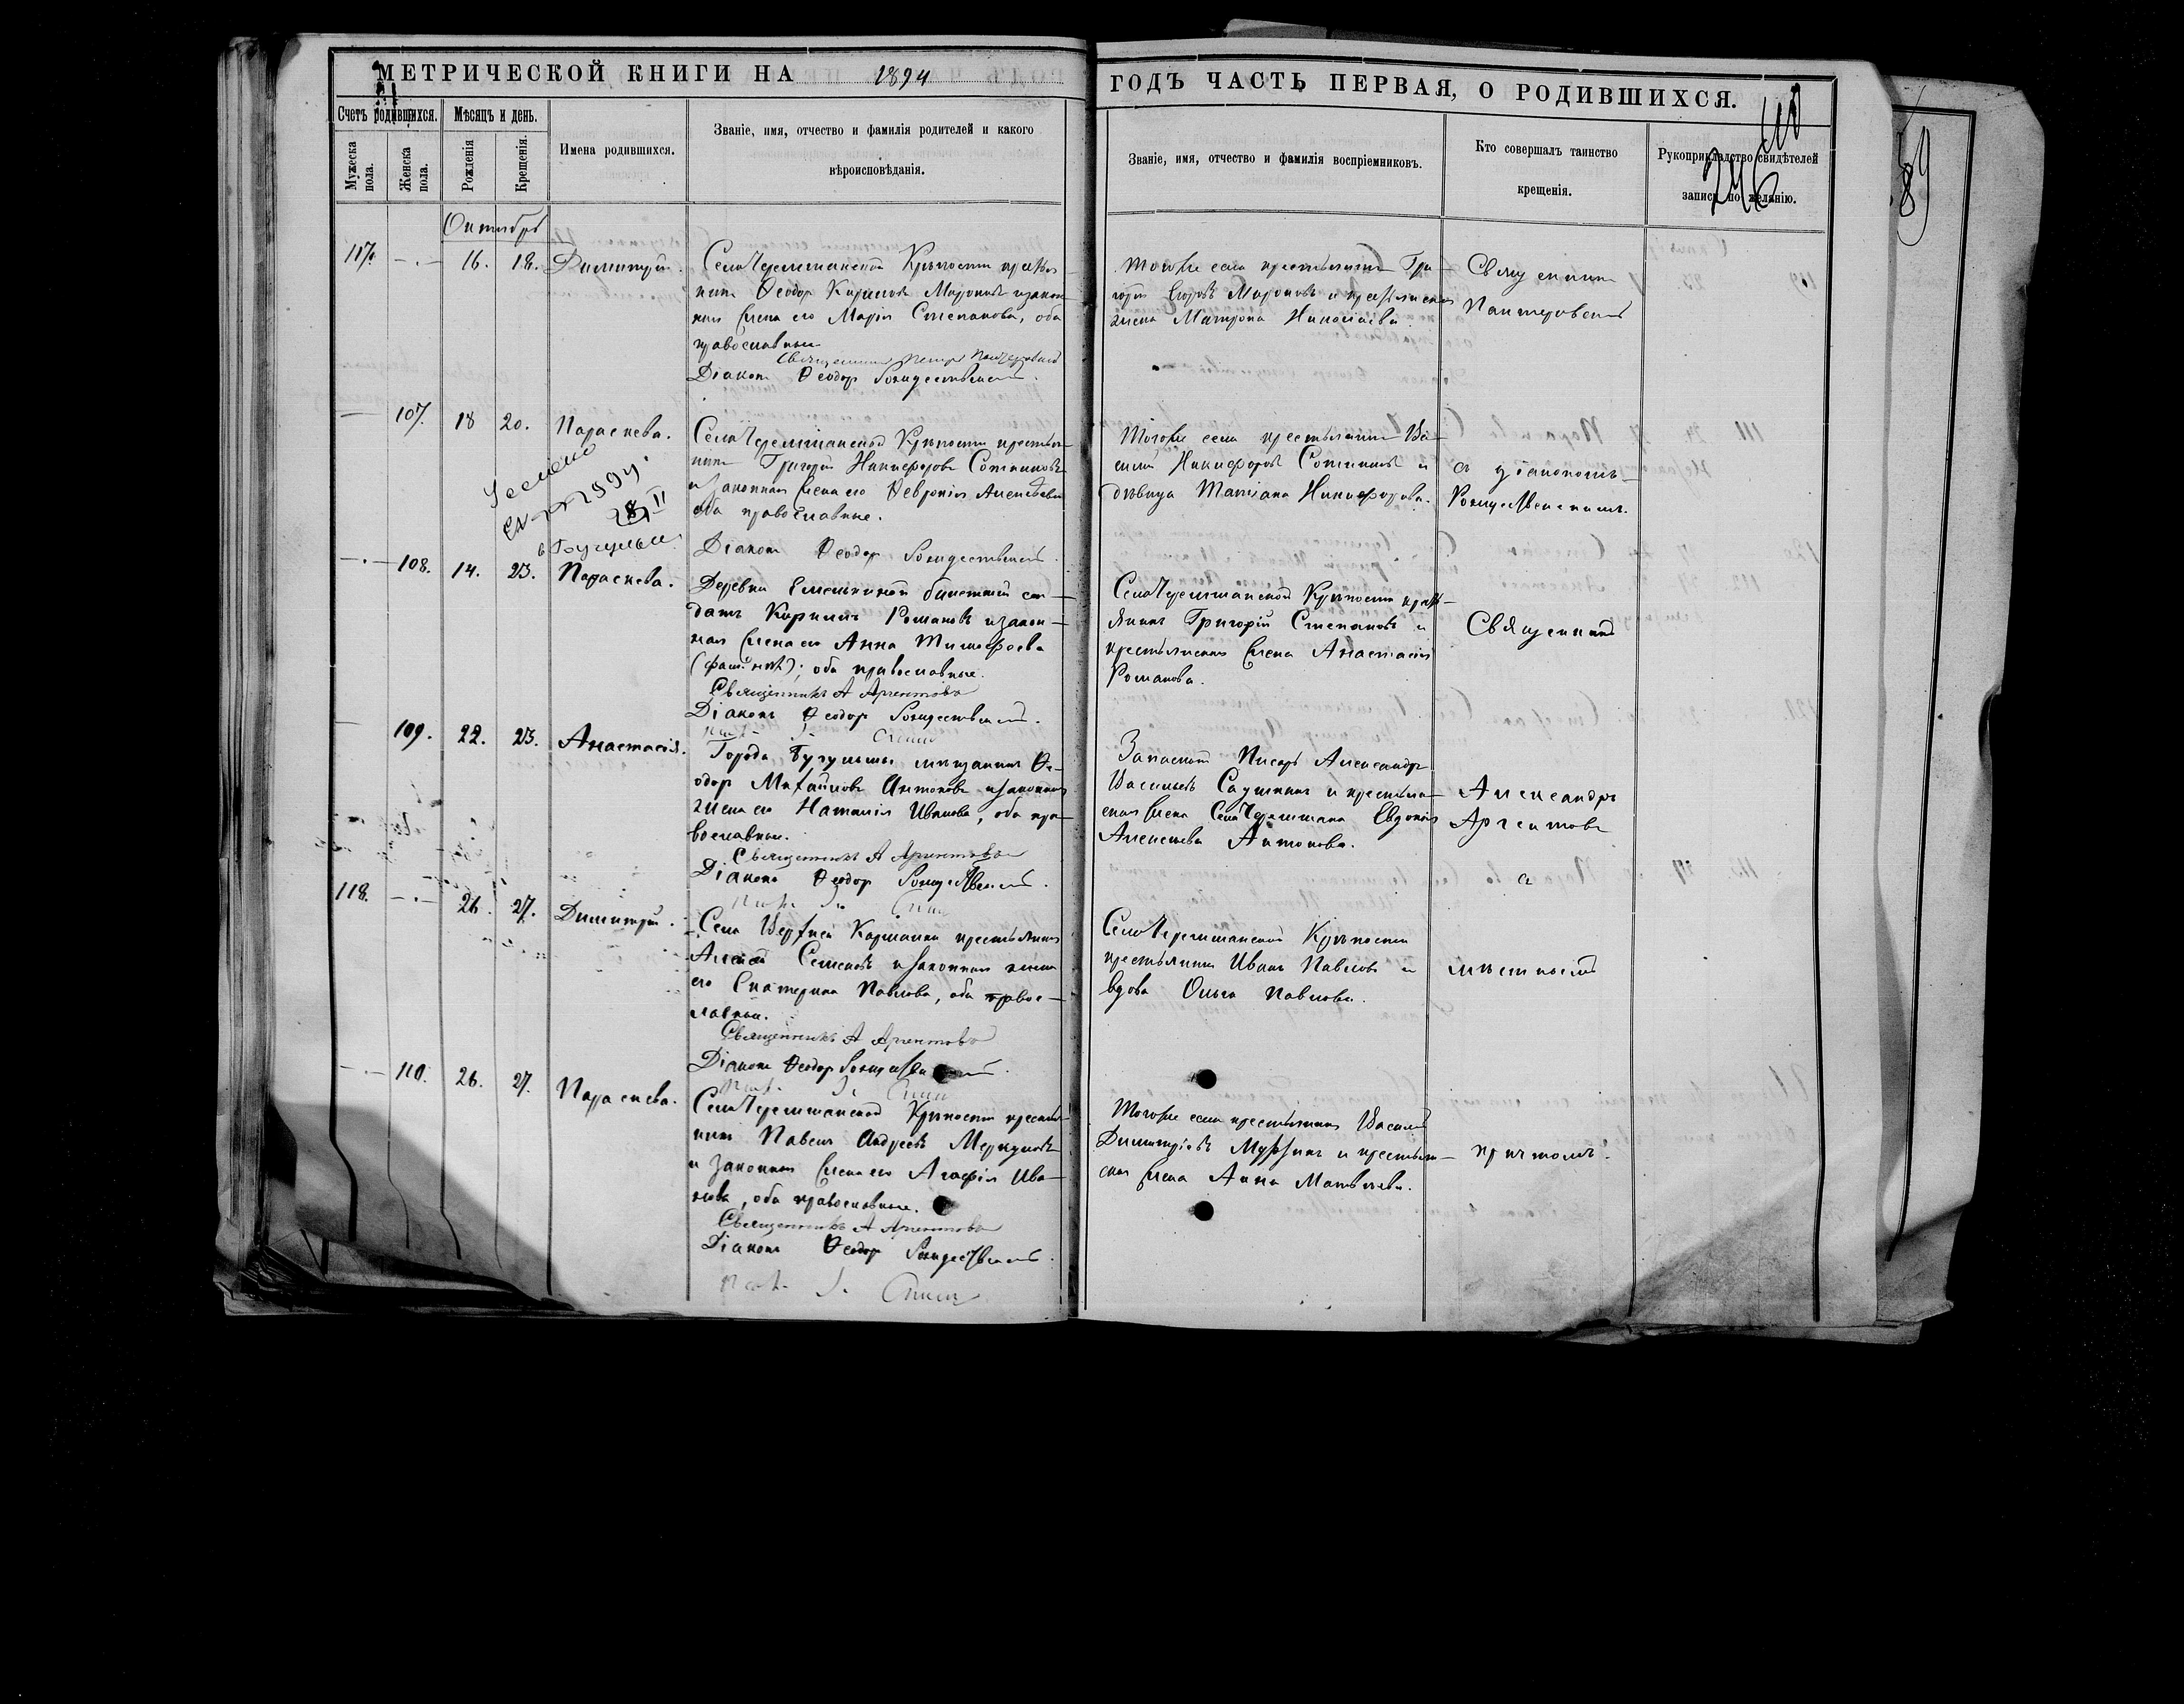 МЕТРИЧЕСКОЙ КНИГИ НА 1894
ГОДЪ ЧАСТЬ ПЕРВАЯ, О РОДИВШИХСЯ.
246
89
Счетъ родившихся.
Мѣсяцъ и день.
Имена родившихся.
Званіе, имя, отчество и фамилія родителей и какого
вѣроисповѣданія.
Мужеска пола.
Женска пола.
Рожденія
Крещенія.
Званіе, имя, отчество и фамилія воспріемниковъ.
Кто совершалъ таинство
крещенія.
Рукоприкладство свидѣтелей
записи по желанію.
Октябрь
117. 16. 18. Димитрій.
Села Черемшанской Крѣпости
Ѳеодор Кирилов Миронов и закон-
ная жена его Марія Степанова, оба
православные
Священникъ Петръ Пантеровскій
Діаконъ Ѳеодор Рождественскій.
Того же села крестьянинъ Гри-
горій Егоровъ Мироновъ и крестьянская
жена Матрона Николаева.
Священникъ
Пантеровскій
107. 18 20. Параскева.
Села Черемшанской Крѣпости крестья-
нинъ Григорій Никифоровъ Сотниковъ
и законная жена его Ѳевронія Алексѣева
оба православные.
Діаконъ Ѳеодор Рождественскій.
Того же села крестьянинъ Ва-
силій Никифоровъ Сотниковъ и
дѣвица Татіана Никифорова.
съ діакономъ
Рождественскимъ.
в Бугульм
108. 14. 23. Параскева.
Деревни Емелькиной билетный сол-
датъ Кириллъ Романовъ и закон-
ная жена его Анна Тимофеева
оба православные.
Священникъ А Аргентовъ
Діаконъ Ѳеодор Рождественскій.
Села Черемшанской Крѣпости крест-
янинъ Григорій Степановъ и
крестьянская жена Анастасія
Романова.
Священникъ
109. 22. 23. Анастасія.
Города Бугульмы мѣщанинъ Ѳе-
одор Михайловъ Антоновъ и законная
жена его Наталія Иванова, оба пра-
вославные.
Священникъ А Аргентовъ
Діаконъ Ѳеодор Рождественскій.
Запасной Писарь Александръ
Васильевъ Саушкинъ и крестьян-
ская жена Села Черемшана Евдокія
Алексѣева Антонова.
Александръ
Аргентовъ
с
118. 26. 27. Димитрій.
Села Верхней Кармалки крестьянинъ
Алексѣй Семеновъ и законная жена
его Екатерина Павлова, оба правос-
лавные.
Священникъ А Аргентовъ
Діаконъ Ѳеодор Рождественскій.
Села Черемшанской Крѣпости
крестьянинъ Иванъ Павловъ и
вдова Ольга Павлова.
мѣстнымъ
110. 26. 27. Параскева.
Села Черемшанской Крѣпости крестья-
нинъ Павелъ Андреевъ Меркуловъ
и законная жена его Агафія Ива-
нова, оба православные.
Священникъ А Аргентовъ
Діаконъ Ѳеодор Рождественскій.
Того же села крестьянинъ Василій
Димитріевъ Мурзинъ и крестьян-
ская жена Анна Матвѣева.
причтомъ.